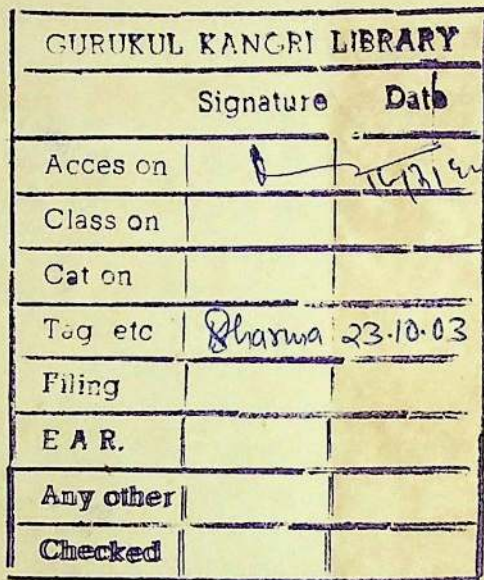 GURUKUL KANGRI LIBRARY
Signature Date
Acces on
Class on
Cat on
Tag etc Sharma 23.10.03
Filing
E A R.
Any other
Checked